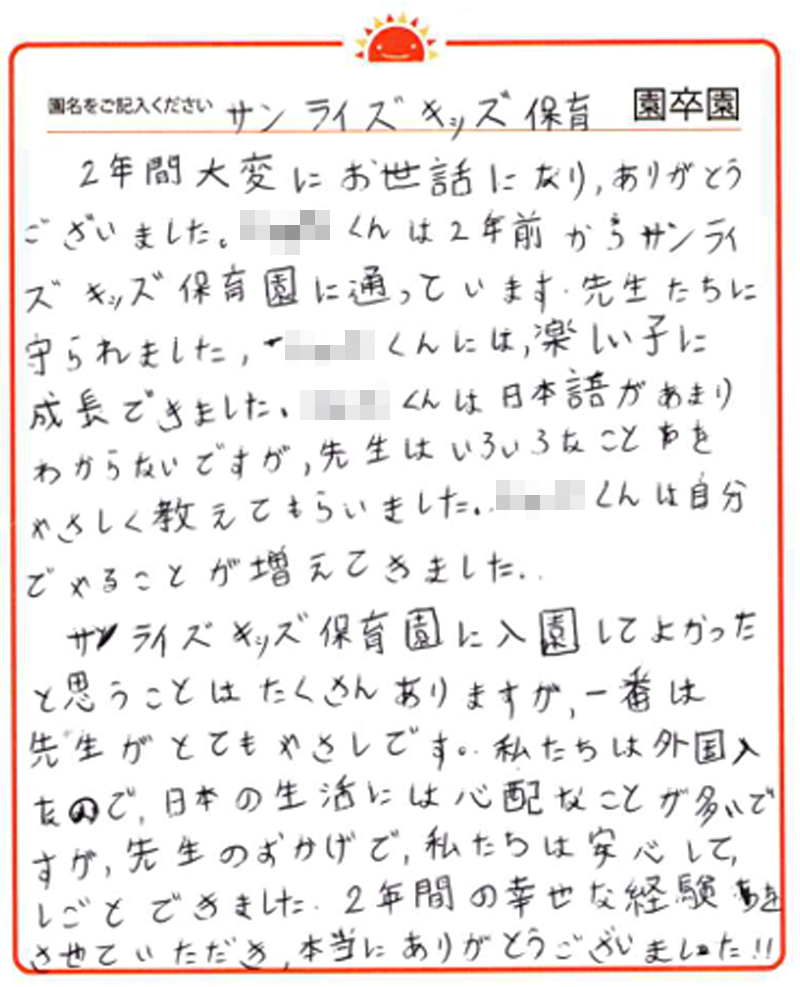 園名をご記入ください サンライズキッズ保育 園卒園
2年間大変にお世話になり,ありがとう
ございました。 くんは2年前からサンライ
ズキッズ保育園に通っています.先生たちに
守られました, くんには,楽しい子に
成長できました. くんは日本語があまり
わからないですが,先生はいろいろなことを
やさしく教えてもらいました. くんは自分
でやることが増えてきました.
サンライズキッズ保育園に入園してよかった
と思うことはたくさんありますが,一番は
先生がとてもやさしです。私たちは外国人
なので,日本の生活には心配なことが多いで
すが,先生のおかげで,私たちは安心して,
しごとできました.2年間の幸せな経験を
させていただき,本当にありがとうございました!!